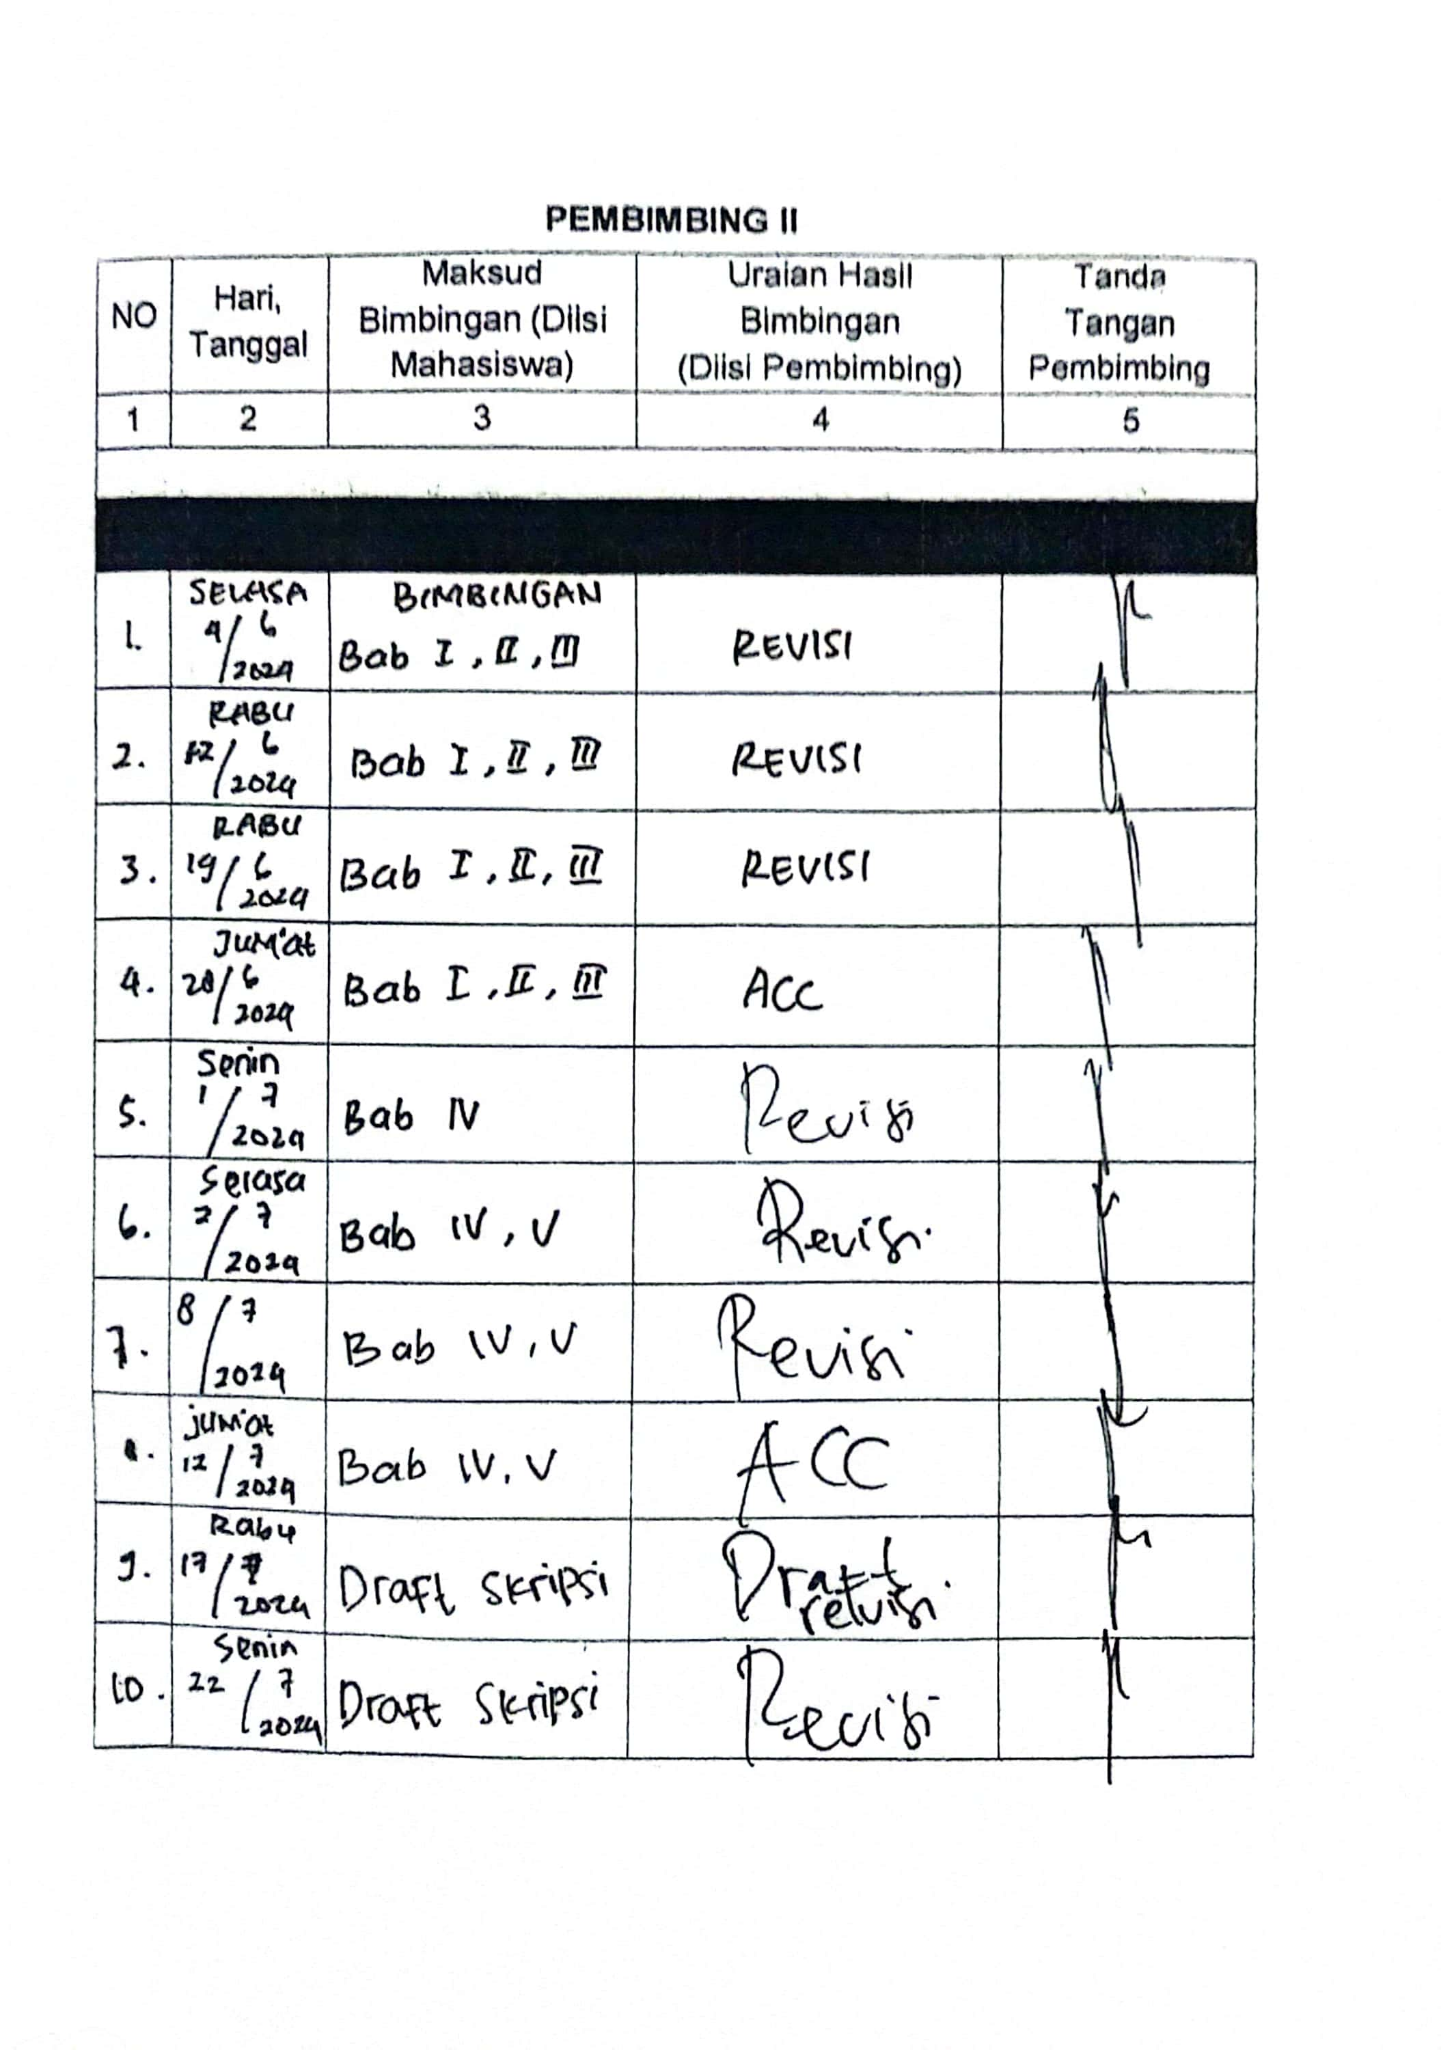 PEMBIMBING II
NO
Hari,
Tanggal
Maksud
Bimbingan (Diisi
Mahasiswa)
Uraian Hasil
Bimbingan
(Diisi Pembimbing)
Tanda
Tangan
Pembimbing
1 2 3 4 5
1.
SELASA
4/6
/2024
BIMBINGAN
Bab I, II, III
REVISI
2.
RABU
12/6
/2024
Bab I, II, III
REVISI
3.
RABU
19/6
/2024
Bab I, II, III
REVISI
4.
JUM'at
28/6
/2024
Bab I, II, III
ACC
5.
Senin
1/7
/2024
Bab IV
Revisi
6.
Selasa
2/7
/2024
Bab IV, V
Revisi.
7.
8/7
/2024
Bab IV, V
Revisi
8.
jum'at
12/7
/2024
Bab IV, V
ACC
9.
Rabu
17/7
/2024
Draft skripsi
Draft
revisi.
10.
Senin
22/7
/2024
Draft skripsi
Revisi